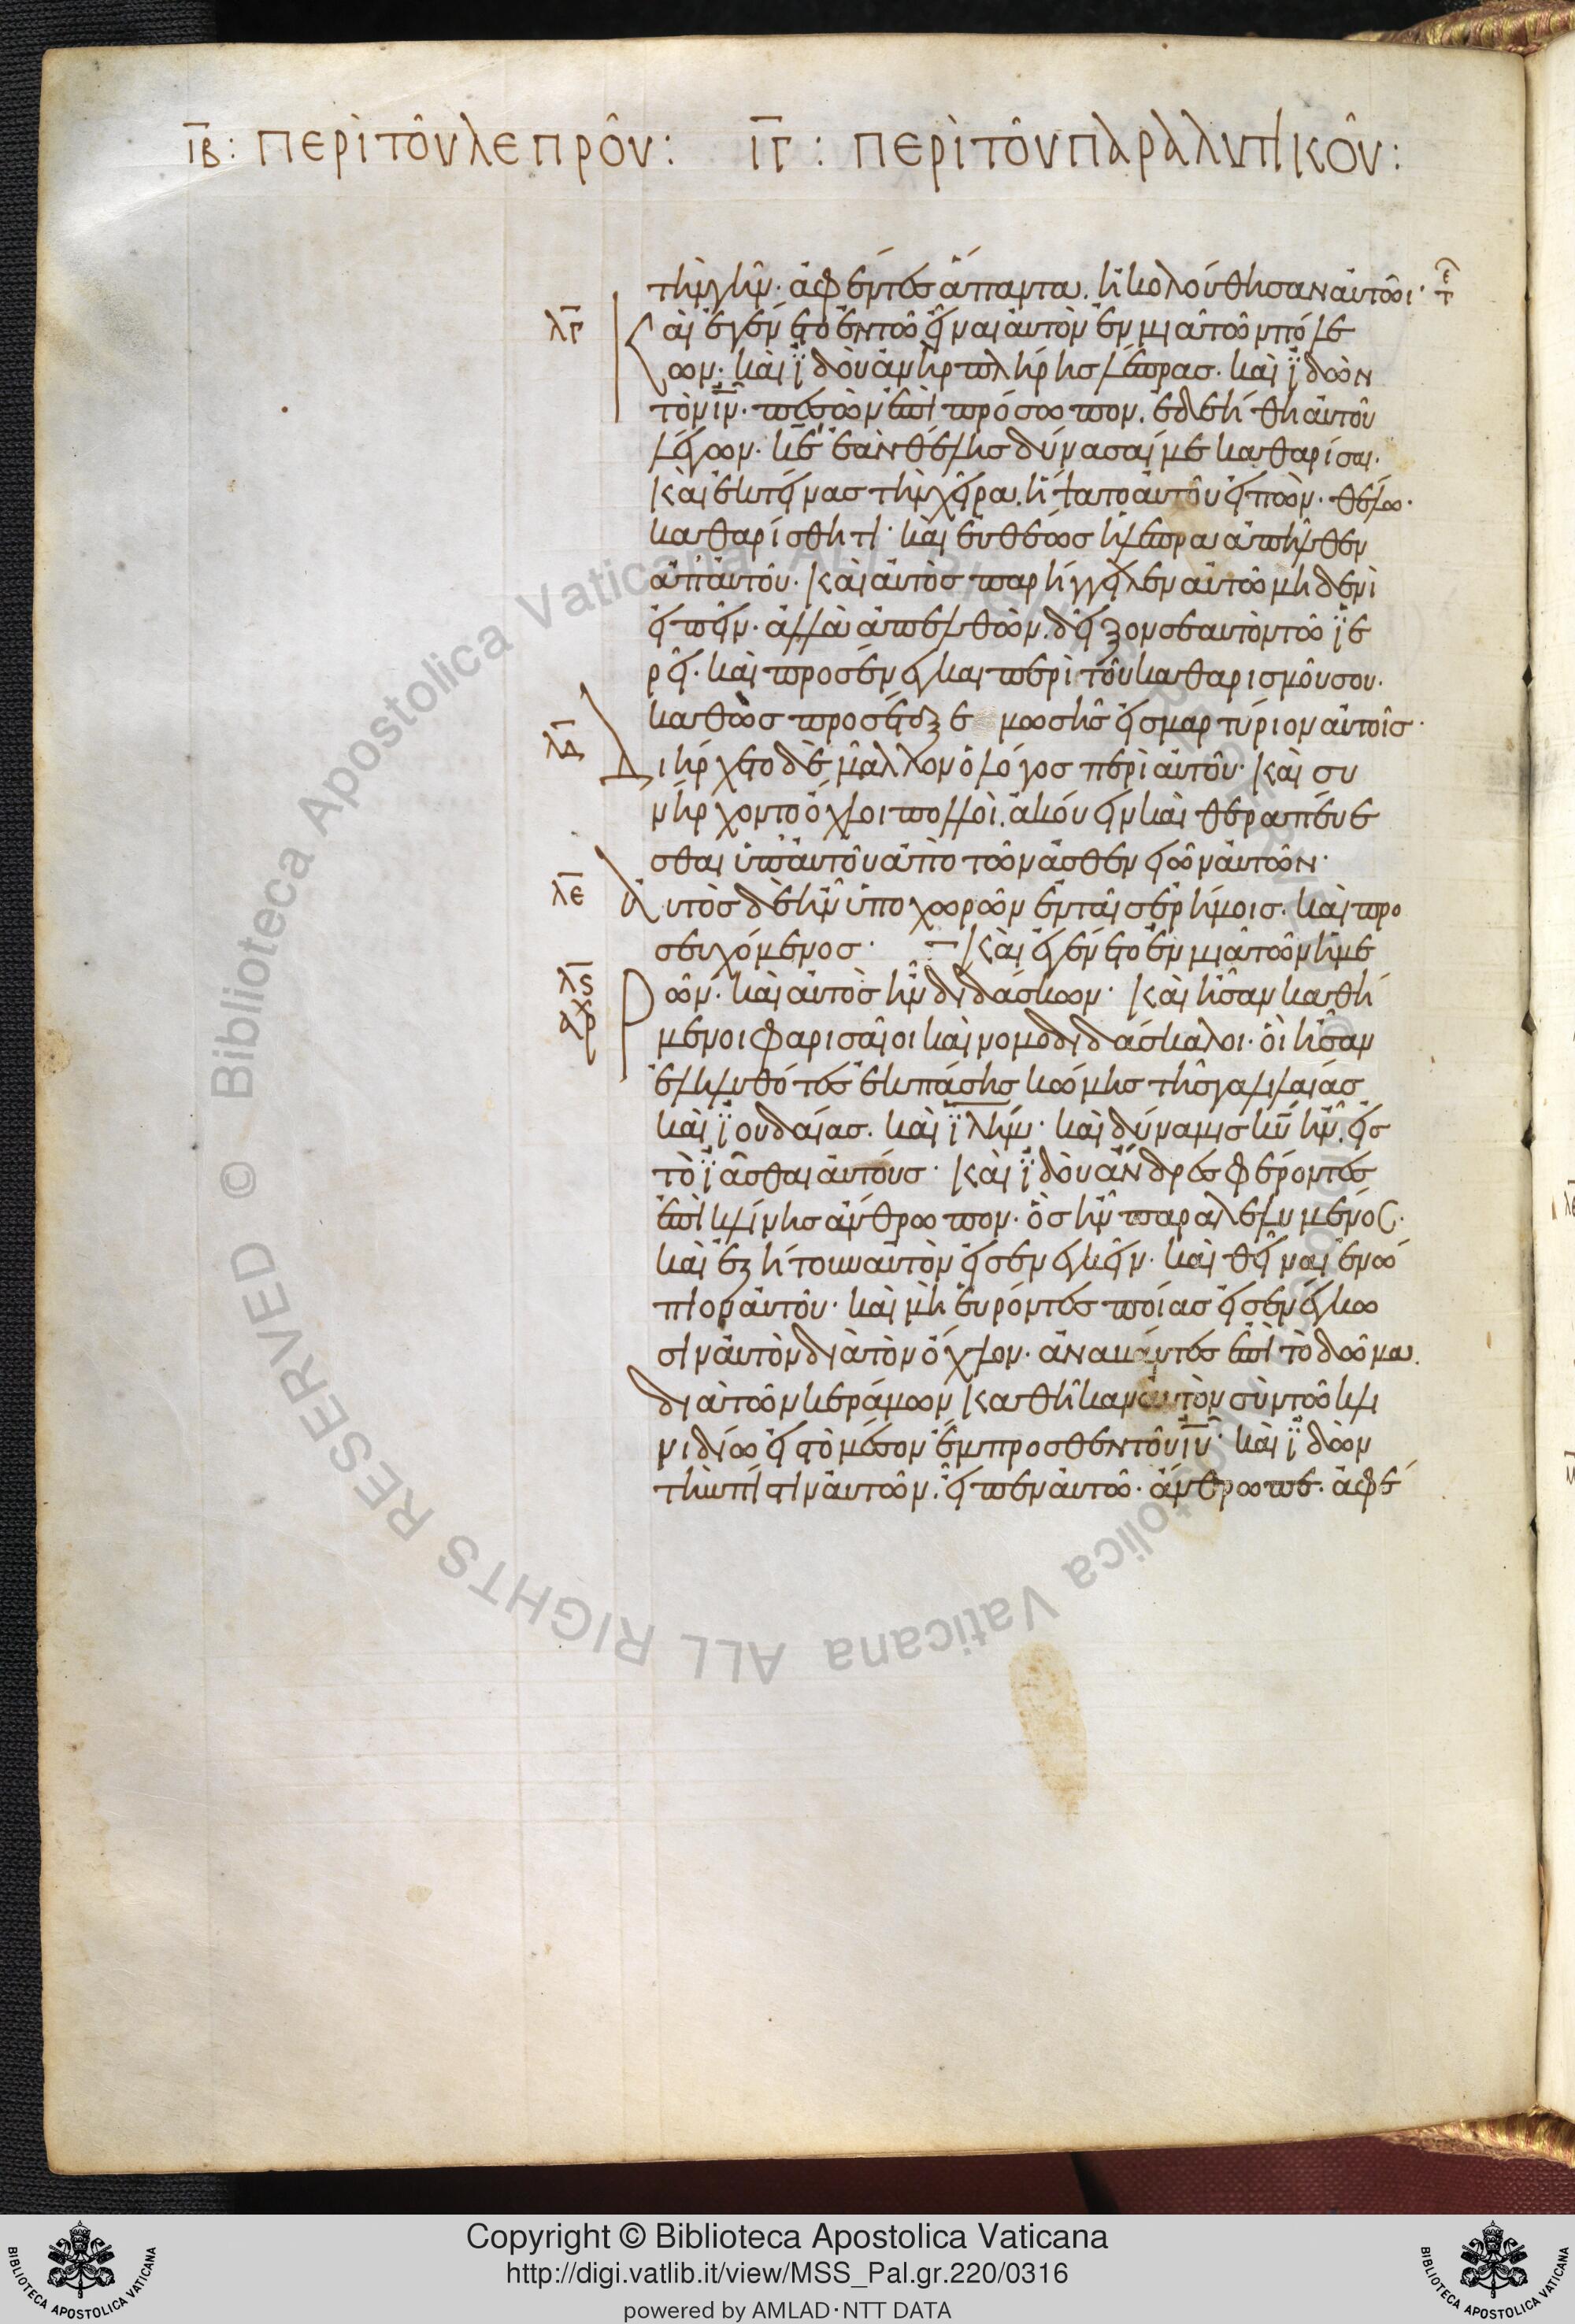 ιβ: περὶ τοῦ λεπροῦ: ιγ: περὶ τοῦ παραλυτικοῦ:
τὴν γῆν· ἀφέντες ἅπαντα. ἠκολούθησαν αὐτῶ·
λγ Καὶ ἐγένετο ἐν τῶ εἶναι αὐτὸν ἐν μιᾶ τῶν πόλε
ων· καὶ ἰδοὺ ἀνὴρ πλήρης λέπρας· καὶ ἰδὼν
τὸν ιν· πεσὼν ἐπὶ πρόσωπον. ἐδεήθη αὐτοῦ
λέγων· κε ἐὰν θέλης δύνασαί με καθαρίσαι·
Καὶ ἐκτείνας τὴν χεῖρα. ἥψατο αὐτοῦ εἰπών· θέλω·
καθαρίσθητι· καὶ εὐθέως ἡ λέπρα ἀπῆλθεν
ἀπ' αὐτοῦ· Καὶ αὐτὸς παρήγγειλεν αὐτῶ μηδενὶ
εἰπεῖν· ἀλλὰ ἀπελθὼν. δεῖξον σεαυτὸν τῶ ἱε
ρεῖ· καὶ προσένεγκαι περὶ τοῦ καθαρισμοῦ σου·
καθὼς προσέταξε μωσῆς εἰς μαρτύριον αὐτοῖς·
λδ Διήρχετο δὲ μᾶλλον ὁ λόγος περὶ αὐτοῦ· Καὶ συ
νήρχοντο ὄχλοι πολλοὶ. ἀκούειν καὶ θεραπεύε
σθαι ὑπ' αὐτοῦ ἀπὸ τῶν ἀσθενειῶν αὐτῶν·
λε Αὐτὸς δὲ ἦν ὑποχωρῶν ἐν ταῖς ἐρήμοις· καὶ προ
σευχόμενος· Καὶ ἐγένετο ἐν μιᾶ τῶν ἡμε
λς ρῶν· καὶ αὐτὸς ἦν διδάσκων· Καὶ ἦσαν καθή
μενοι φαρισαῖοι καὶ νομοδιδάσκαλοι· οἳ ἦσαν
ἐληλυθότες ἐκ πάσης κώμης τῆς γαλιλαίας
καὶ ἰουδαίας· καὶ ιλημ· καὶ δύναμις κυ ἦν. εἰς
τὸ ἰᾶσθαι αὐτούς· Καὶ ἰδοὺ ἄνδρες φέροντες
ἐπὶ κλίνης ἄνθρωπον· ὃς ἦν παραλελυμένος·
καὶ ἐζήτουν αὐτὸν εἰσενεγκεῖν· καὶ θεῖναι ἐνώ
πιον αὐτοῦ· καὶ μὴ εὑρόντες ποίας εἰσενέγκω
σιν αὐτὸν διὰ τὸν ὄχλον· ἀναβάντες ἐπὶ τὸ δῶμα.
διὰ τῶν κεράμων καθῆκαν αὐτὸν σὺν τῶ κλι
νιδίω εἰς τὸ μέσον ἔμπροσθεν τοῦ ιυ· καὶ ἰδὼν
τὴν πίστιν αὐτῶν. εἶπεν αὐτῶ· ἄνθρωπε· ἀφέ